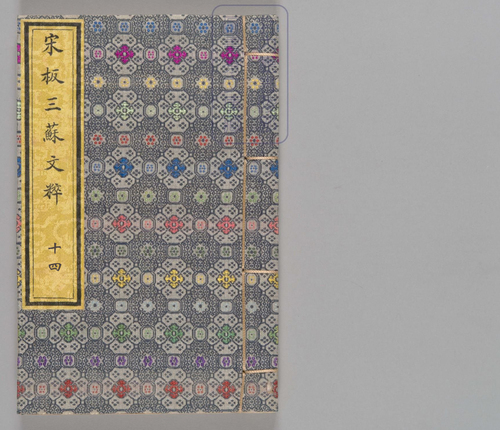 宋板三蘇文粹
十四